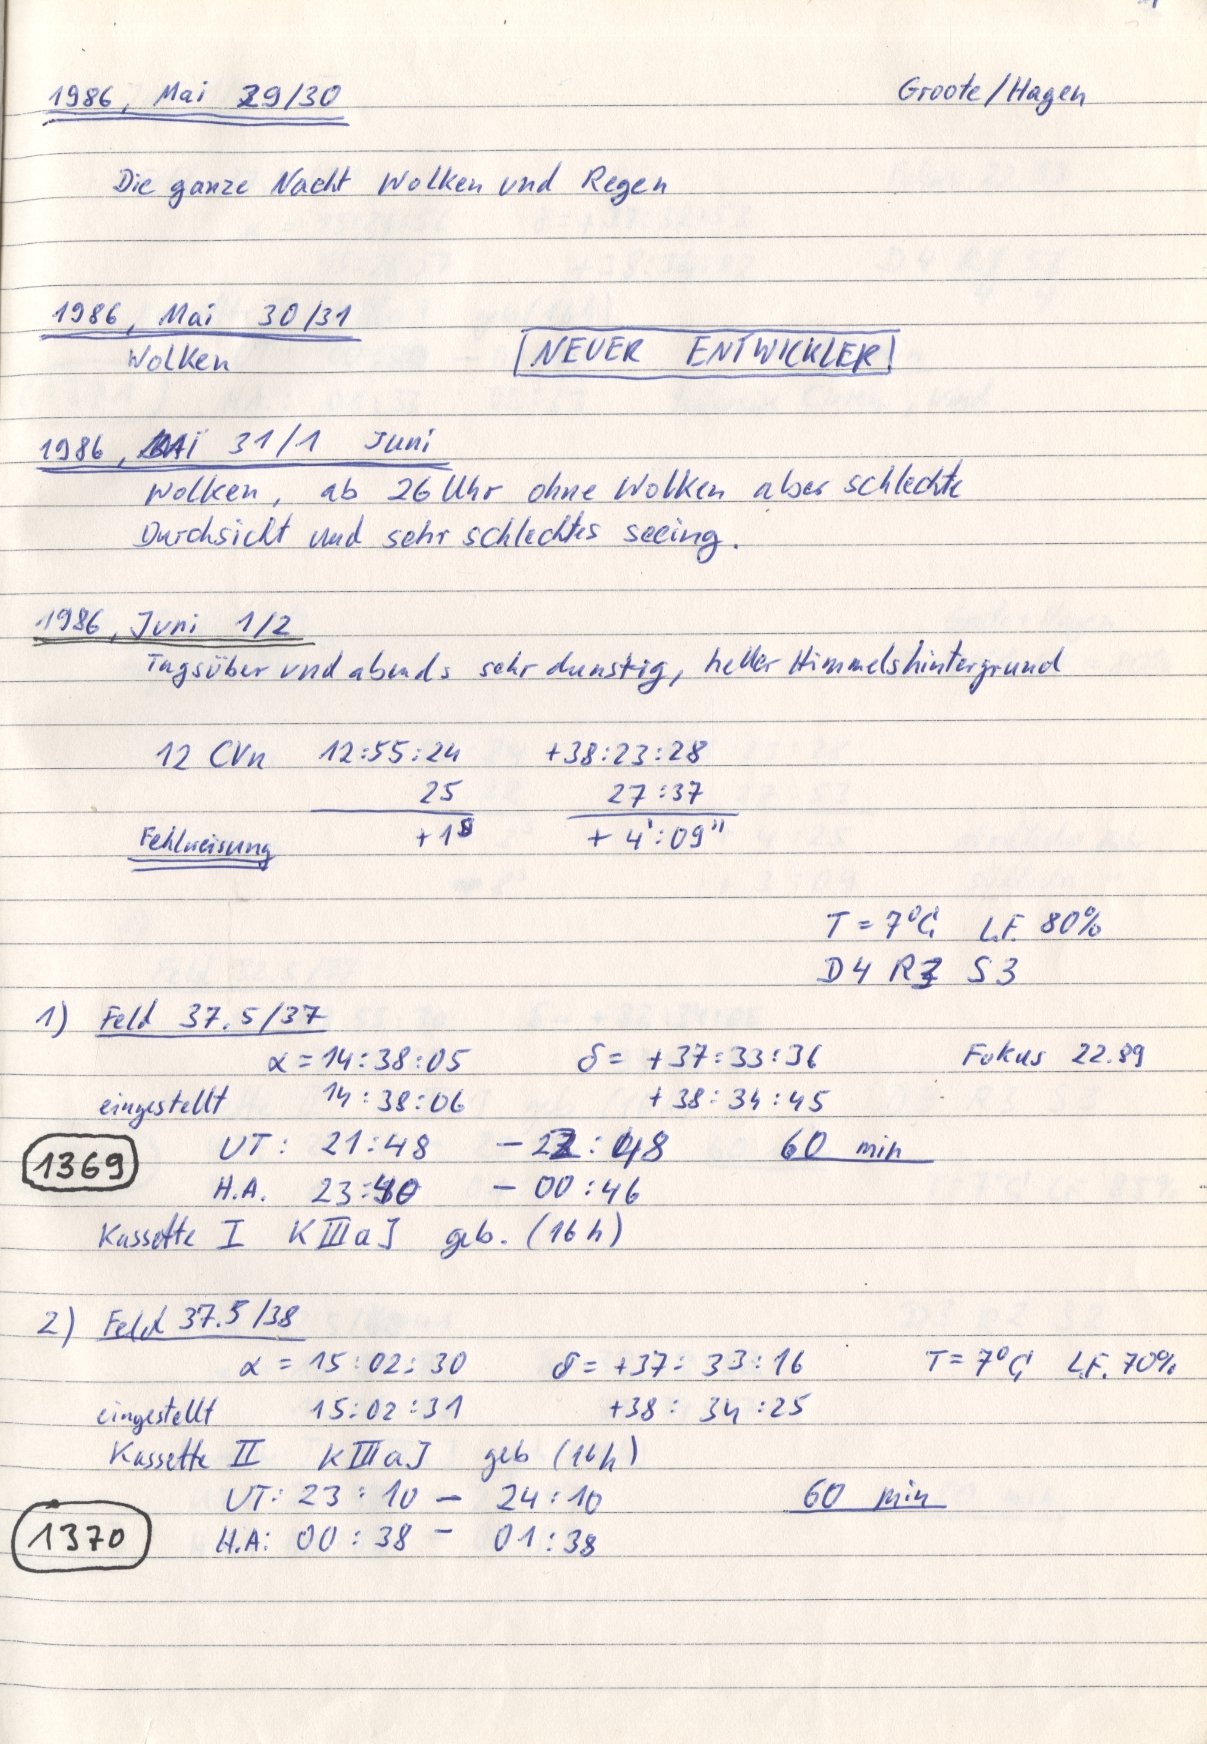 1986, Mai 29/30 Groote/Hagen
Die ganze Nacht Wolken und Regen
1986, Mai 30/31
Wolken NEUER ENTWICKLER!
1986, MAI 31/1 Juni
Wolken, ab 26 Uhr ohne Wolken aber schlechte
Durchsicht und sehr schlechtes seeing.
1986, Juni 1/2
Tagsüber und abends sehr dunstig, heller Himmelshintergrund
12 CVn 12:55:24 +38:23:28
25 27:37
Fehlweisung +1s + 4':09"
T = 7°C, L.F. 80%
D4 R3 S3
1) Feld 37.5/37
α = 14:38:05 δ = +37:33:36 Fokus 22.89
eingestellt 14:38:06 +38:34:45
UT: 21:48 - 22:48 60 min
1369
H.A. 23: - 00:46
Kassette I KIIIaJ geb. (16h)
2) Feld 37.5/38
α = 15:02:30 δ = +37:33:16 T = 7°C, L.F. 70%
eingestellt 15:02:31 +38:34:25
Kassette II KIIIaJ geb (16h)
UT: 23:10 - 24:10 60 min
1370 H.A: 00:38 - 01:38